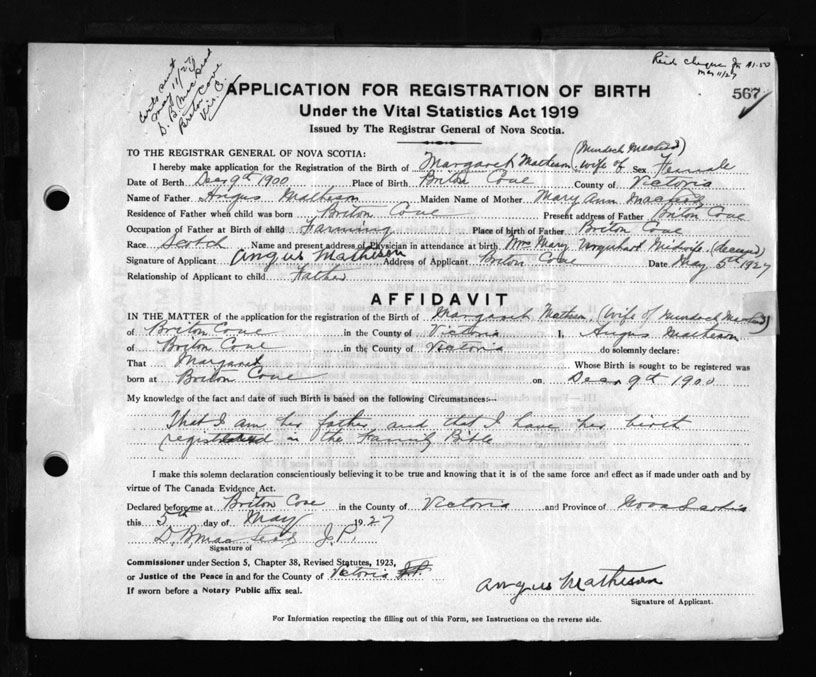 Certs sent
May 11/27
D. B. MacLeod
Breton Cove
Vic. C.
May 11/27
567
APPLICATION FOR REGISTRATION OF BIRTH
Under the Vital Statistics Act 1919
Issued by The Registrar General of Nova Scotia.
TO THE REGISTRAR GENERAL OF NOVA SCOTIA:
I hereby make application for the Registration of the Birth of Margaret Matheson (wife of Murdoch MacLeod) Sex Female
Date of Birth Dec. 9th 1900 Place of Birth Briton Cove County of Victoria
Name of Father Angus Matheson Maiden Name of Mother Mary Ann MacLeod
Residence of Father when child was born Briton Cove Present address of Father Briton Cove
Occupation of Father at Birth of child Farming Place of birth of Father Briton Cove
Race Scotch Name and present address of Physician in attendance at birth Mrs Mary Urquhart Midwife. (deceased)
Signature of Applicant Angus Matheson Address of Applicant Briton Cove Date May 5th 1927
Relationship of Applicant to child Father
AFFIDAVIT
IN THE MATTER of the application for the registration of the Birth of Margaret Matheson, (wife of Murdoch MacLeod)
of Briton Cove in the County of Victoria I, Angus Matheson
of Briton Cove in the County of Victoria do solemnly declare:
That Margaret Whose Birth is sought to be registered was
born at Briton Cove on Dec. 9th 1900
My knowledge of the fact and date of such Birth is based on the following Circumstances:—
That I am her father and that I have her birth
registered in the Family Bible
I make this solemn declaration conscientiously believing it to be true and knowing that it is of the same force and effect as if made under oath and by
virtue of The Canada Evidence Act.
Declared before me at Briton Cove in the County of Victoria and Province of Nova Scotia
this 5th day of May 1927
D. B. MacLeod J. P.
Signature of
Commissioner under Section 5, Chapter 38, Revised Statutes, 1923,
or Justice of the Peace in and for the County of Victoria
If sworn before a Notary Public affix seal.
Angus Matheson
Signature of Applicant.
For Information respecting the filling out of this Form, see Instructions on the reverse side.